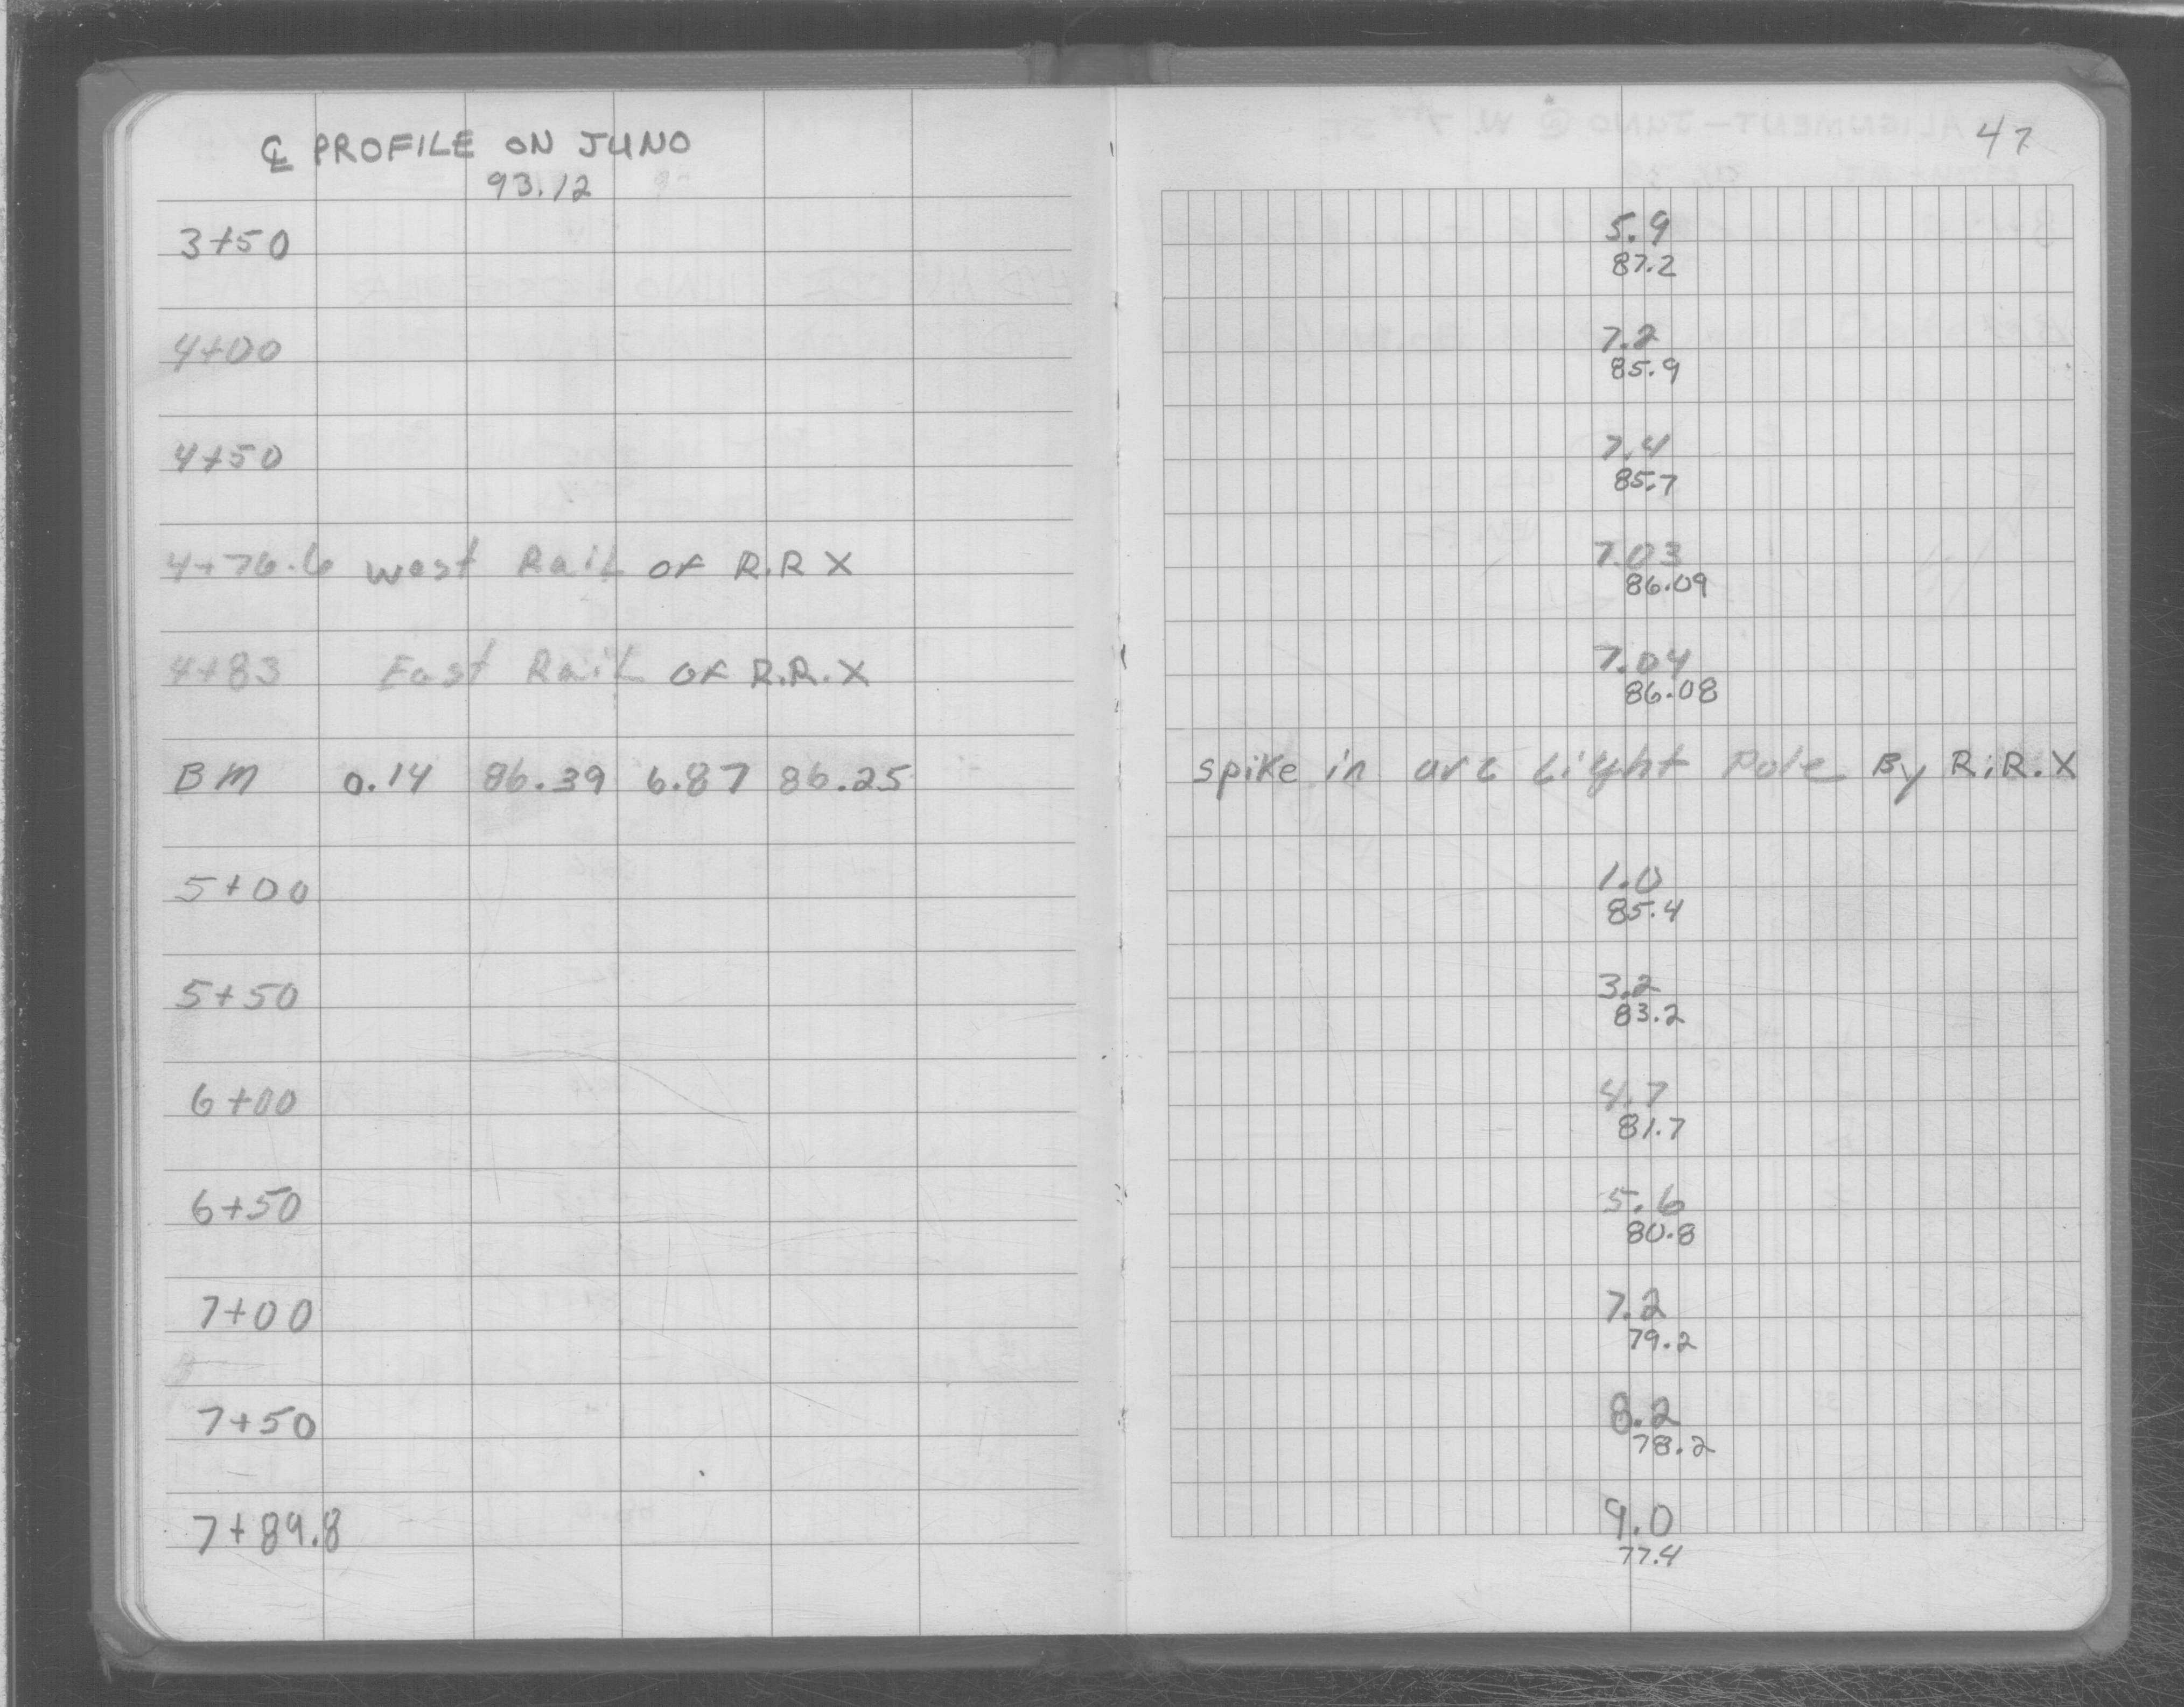 ℄ PROFILE ON JUNO
93.12
47
3+50 5.9
87.2
4+00 7.2
85.9
4+50 7.4
85.7
4+76.6 West Rail of R.R X 7.03
86.09
4+83 East Rail of R.R.X 7.04
86.08
BM 0.14 86.39 6.87 86.25 Spike in arc Light Pole By R.R.X
5+00 1.0
85.4
5+50 3.2
83.2
6+00 4.7
81.7
6+50 5.6
80.8
7+00 7.2
79.2
7+50 8.2
78.2
7+89.8 9.0
77.4